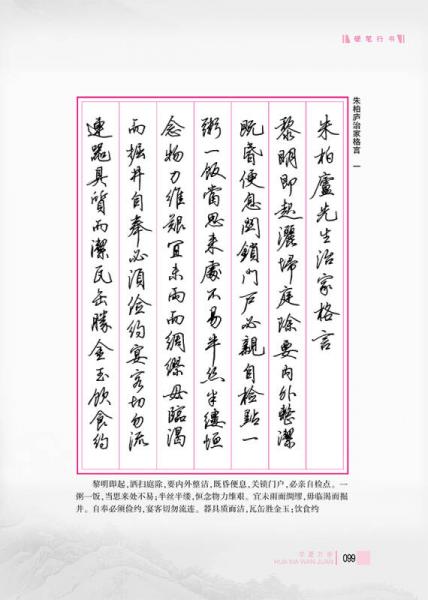 硬笔行书
朱柏庐治家格言 一
朱柏廬先生治家格言
黎明即起灑埽庭除要内外整潔
既昏便息関鎖門戸必親自檢點一
粥一飯當思来處不易半丝半縷恒
念物力维艱宜未雨而綢缪毋臨渴
而掘井自奉必須儉约宴客切勿流
連器具質而潔瓦缶勝金玉饮食约
黎明即起,洒扫庭除,要内外整洁,既昏便息,关锁门户,必亲自检点。一
粥一饭,当思来处不易;半丝半缕,恒念物力维艰。宜未雨而绸缪,毋临渴而掘
井。自奉必须俭约,宴客切勿流连。器具质而洁,瓦缶胜金玉;饮食约
华夏万卷
HUA XIA WAN JUAN
099